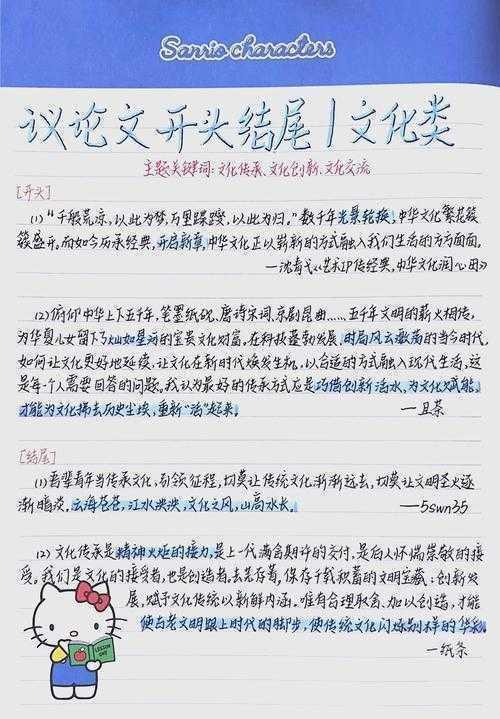 Sanrio characters
议论文开头结尾|文化类
主题关键词：文化传承、文化创新、文化交流
[开头]
(1)“千般荒凉，以此为梦，万里蹀躞，以此为归。”数千年光景轮换，中华文化繁花簇
簇盛开。而如今历承经典，开启新章，中华文化正以崭新的方式融入我们生活的方方面面。
—沈青弋《艺术IP传经典，中华文化润心田》
(2)俯仰中华上下五千年，笔墨纸砚、唐诗宋词、京剧昆曲……五千年文明的薪火相传，
为华夏儿女留下了灿如星河的宝贵文化财富。在科技蓬勃发展、时局风云激荡的当今时代，
如何让文化更好地延续、让文化在新时代焕发生机，以合适的方式融入现代生活，这
是每个人需要回答的问题。我认为最好的传承方式应是巧借创新活水，为文化赋能，
才能为文化拂去历史尘埃，重新“活”起来。 —且茶
[结尾]
(1)吾辈青年当传承文化，引领征程，切莫让传统文化渐渐远去，切莫让文明圣火逐
渐暗淡。云海苍苍，江水泱泱，文化之风，山高水长。 —5swn35
(2)文化传承是精神火炬的接力，是上一代满含期许的交付，是后人怀揣崇敬的接
受。我们是文化的接受者，也是创造者，去芜存菁，保存千载积蓄的文明宝藏；创新发
展，赋予文化传统以新鲜内涵。唯有合理取舍、加以创造，才能
使古老文明跟上时代的脚步，使传统文化闪烁别样的华彩。
—纸条
LESSON ONE